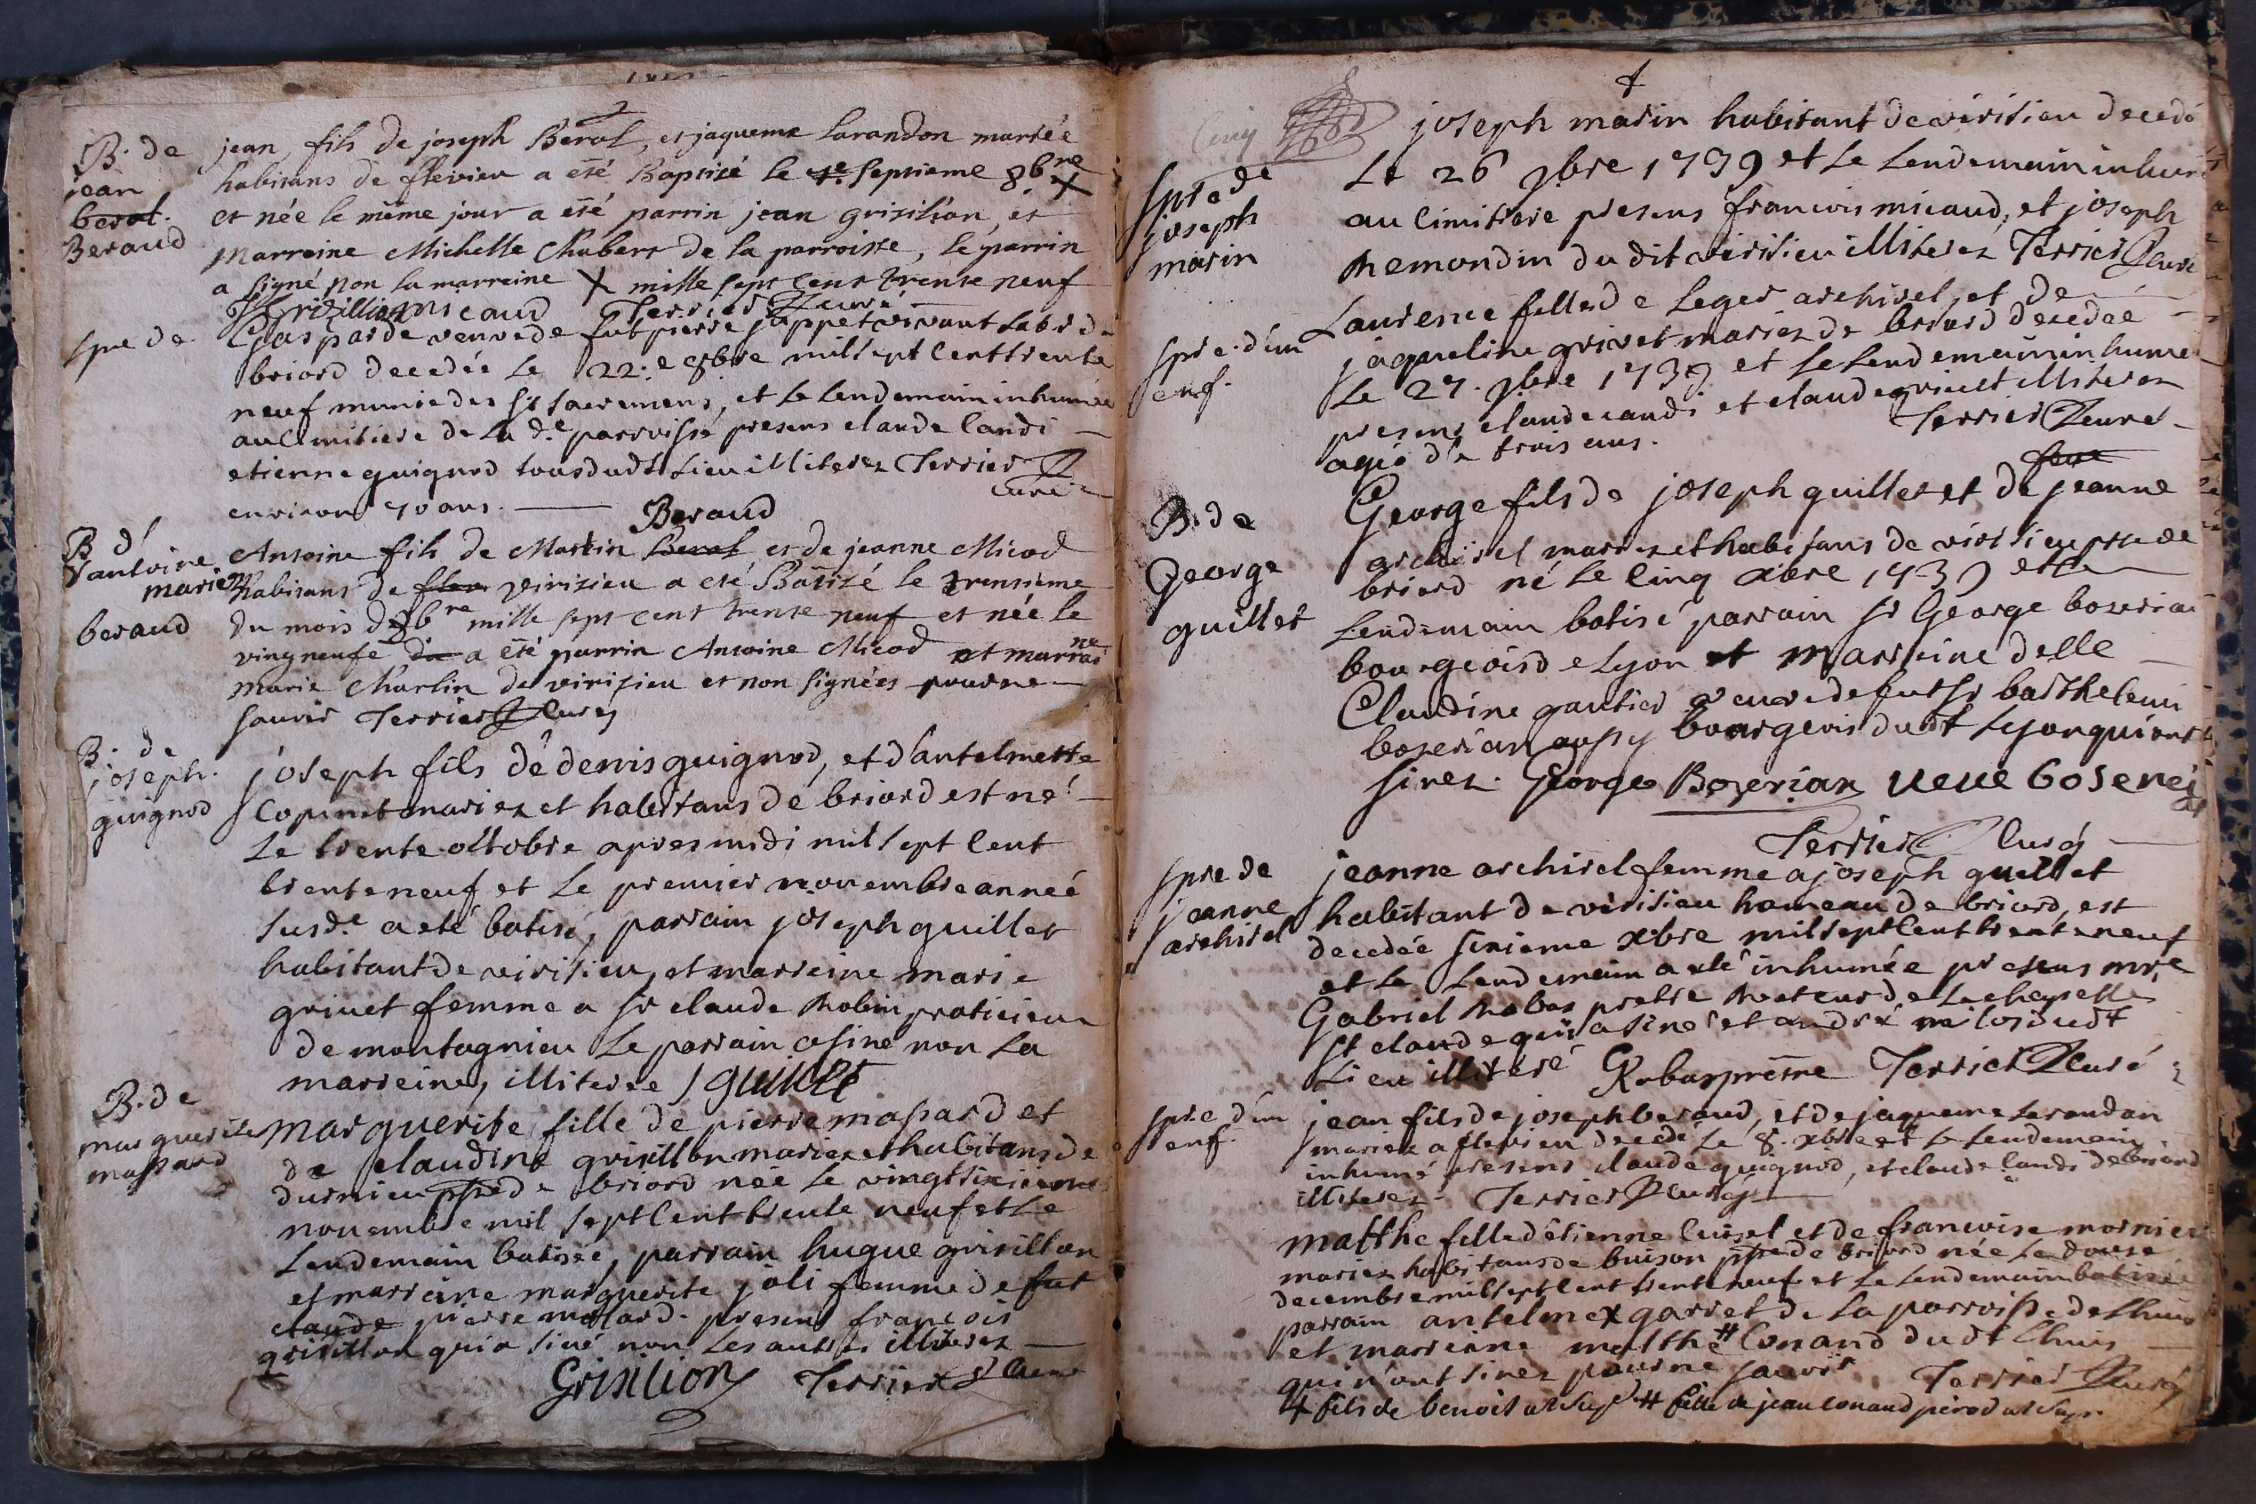 B. de
jean
berol.
Beraud
jean fils de joseph Berol, et jaqueme Larandon mariée
habitans de flevieu a été Baptisé le 7e septieme 8bre X
et née le même jour a été parrin jean grisilion, et
marreine Michelle Chabert de la parroisse, le parrin
a signé non la marreine X mille sept cent trente neuf
Grizillion micaud Terrier curé
spre de
Gasparde veuve de fut pierre juppet vivant labr de
briord decedée le 22.e 8bre mil sept cent trente
neuf munie des st sacremens, et le lendemain inhumée
au cimitiere de la d.e parroisse presens claude landi
etienne guignod tous dudt lieu illiterez Terrier
curé
environ 70 ans.
B d'
antoine
marie
beraud
Beraud
Antoine fils de Martin Berol et de jeanne Micod
habitans de flev virizieu a eté Batizé le trensieme
du mois d 8bre mille sept cent trente neuf et née le
vingneufe du a été parrin Antoine Micod et marraine
marie Charlin de virizieu et non signées pour ne
sauvir Terrier curé
B. de
joseph.
guignod
joseph fils de denis guignod, et d'antelmette
Copinet mariez et habitans de briord est né
le trente octobre apres midi mil sept cent
trente neuf et le premier novembre anneé
susd.e a eté batisé, parrain joseph guillet
habitant de virisieu, et marreine marie
grivet femme a sr claude Robin praticien
de montagnieu le parrain a siné non la
marreine, illiterée J guillet
B. de
marguerite
massard
marguerite fille de pierre massard et
de claudine grisillon mariez et habitans de
durnieu psse de briord née le vingtsixieme
novembre mil sept cent trente neuf et le
lendemain batisée, parrain hugue grisillon
et marreine marguerite joli femme de fut
claude pierre massard. presens francois
grisillon qui a siné non les autres illiterez
Grisilion Terrier curé
Cinq
joseph marin habitant de virisieu decedé
spre de
joseph
marin
le 26 9bre 1739 et le lendemain inhumé
au cimitiere presens francois micaud, et joseph
Remondin du dit virisieu illiterez Terrier curé
spre. d'un
enf.
Laurence fille de Leger archirel, et de
jaqueline grivet mariez de briord decedée
le 27. 9bre 1739 et le lendemain inhumé
presens claude candi et claude grivet illiterez
agée de trois ans. Terrier curé
B. de
George
guillet
George fils de joseph guillet et de jeanne
archirel mariez et habitans de virisieu psse de
briord né le cinq xbre 1739 et le
lendemain batisé parrain sr George bozerian
bourgeois de Lyon et marreine delle
Claudine gautier veuve de fut sr barthelemi
bozerian aussy bourgeois dudt Lyon qui ont
sinez. George Bozerian veue bosenei
Terrier curé
spre de
jeanne
archirel
jeanne archirel femme a joseph guillet
habitant de virisieu hameau de briord, est
decedée sixieme xbre mil sept cent trente neuf
et le lendemain a eté inhumée presens mre
Gabriel Robas pretre Recteur de la chapelle
st claude qui a siné et andré milos dudt
lieu illiteré GRobas prestre Terrier curé
spre d'un
enf.
jean fils de joseph beraud, et de jaqueme Lerandon
mariez a flevieu decedé le 8. xbre et le lendemain
inhumé presens claude guignod, et claude landi de briord
illiterez. Terrier curé
matthe fille d'etienne cuisel et de francoise mornier
mariez habitans de buison psse de briord née le douse
decembre mil sept cent trente neuf et le lendemain batisée
parrain antelme X garret de la parroisse de Lhuis
et marreine matthe # Conand dudt Lhuis
qui n'ont sinez pour ne sauvir Terrier curé
X fils de benoit ut supr # fille de jean conand pirod ut supr.